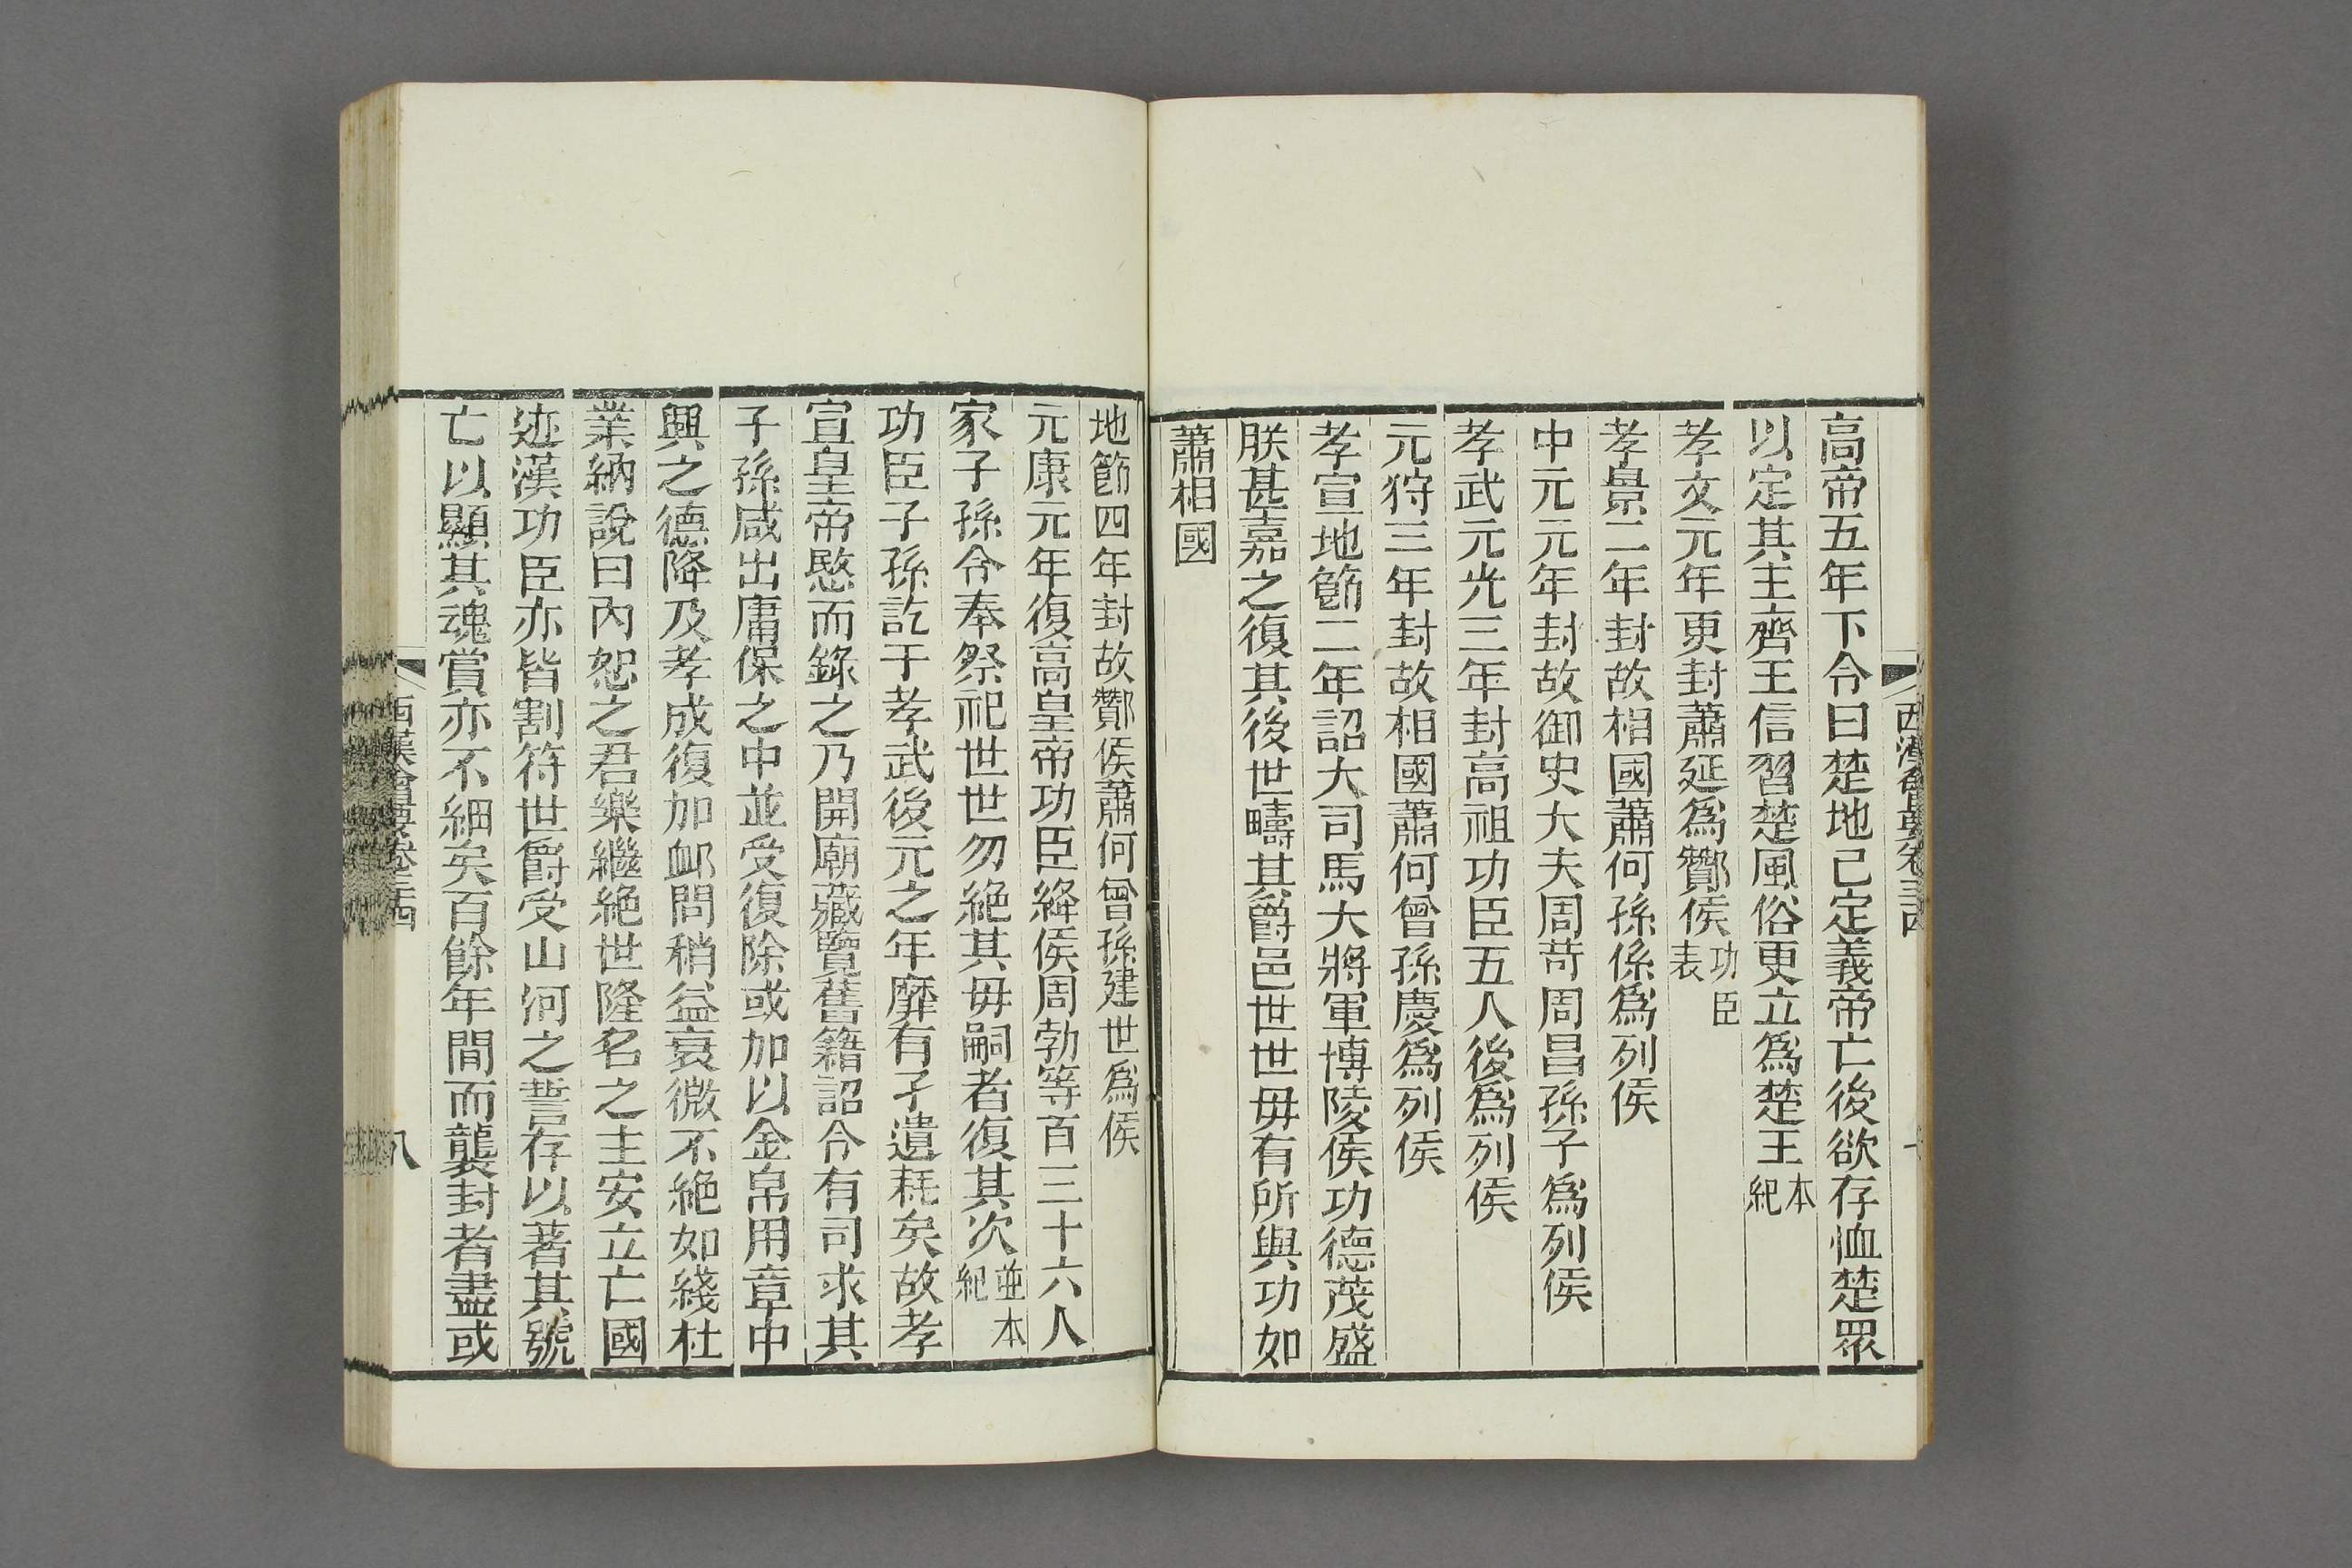 西漢會要卷三四
高帝五年下令曰楚地已定義帝亡後欲存恤楚眾
以定其主齊王信習楚風俗更立爲楚王本紀
孝文元年更封蕭延爲酇侯功臣表
孝景二年封故相國蕭何孫係爲列侯
中元元年封故御史大夫周苛周昌孫子爲列侯
孝武元光三年封高祖功臣五人後爲列侯
元狩三年封故相國蕭何曾孫慶爲列侯
孝宣地節二年詔大司馬大將軍博陵侯功德茂盛
朕甚嘉之復其後世疇其爵邑世世毋有所與功如
蕭相國
地節四年封故酇侯蕭何曾孫建世爲侯
元康元年復高皇帝功臣絳侯周勃等百三十六人
家子孫令奉祭祀世世勿絕其毋嗣者復其次並本紀
功臣子孫訖于孝武後元之年靡有孑遺耗矣故孝
宣皇帝愍而錄之乃開廟藏覽舊籍詔令有司求其
子孫咸出庸保之中並受復除或加以金帛用章中
興之德降及孝成復加衈問稍益衰微不絕如綫杜
業納說曰內恕之君樂繼絕世隆名之主安立亡國
迹漢功臣亦皆割符世爵受山河之誓存以著其號
亡以顯其魂賞亦不細矣百餘年間而襲封者盡或
西漢會要卷三四
八